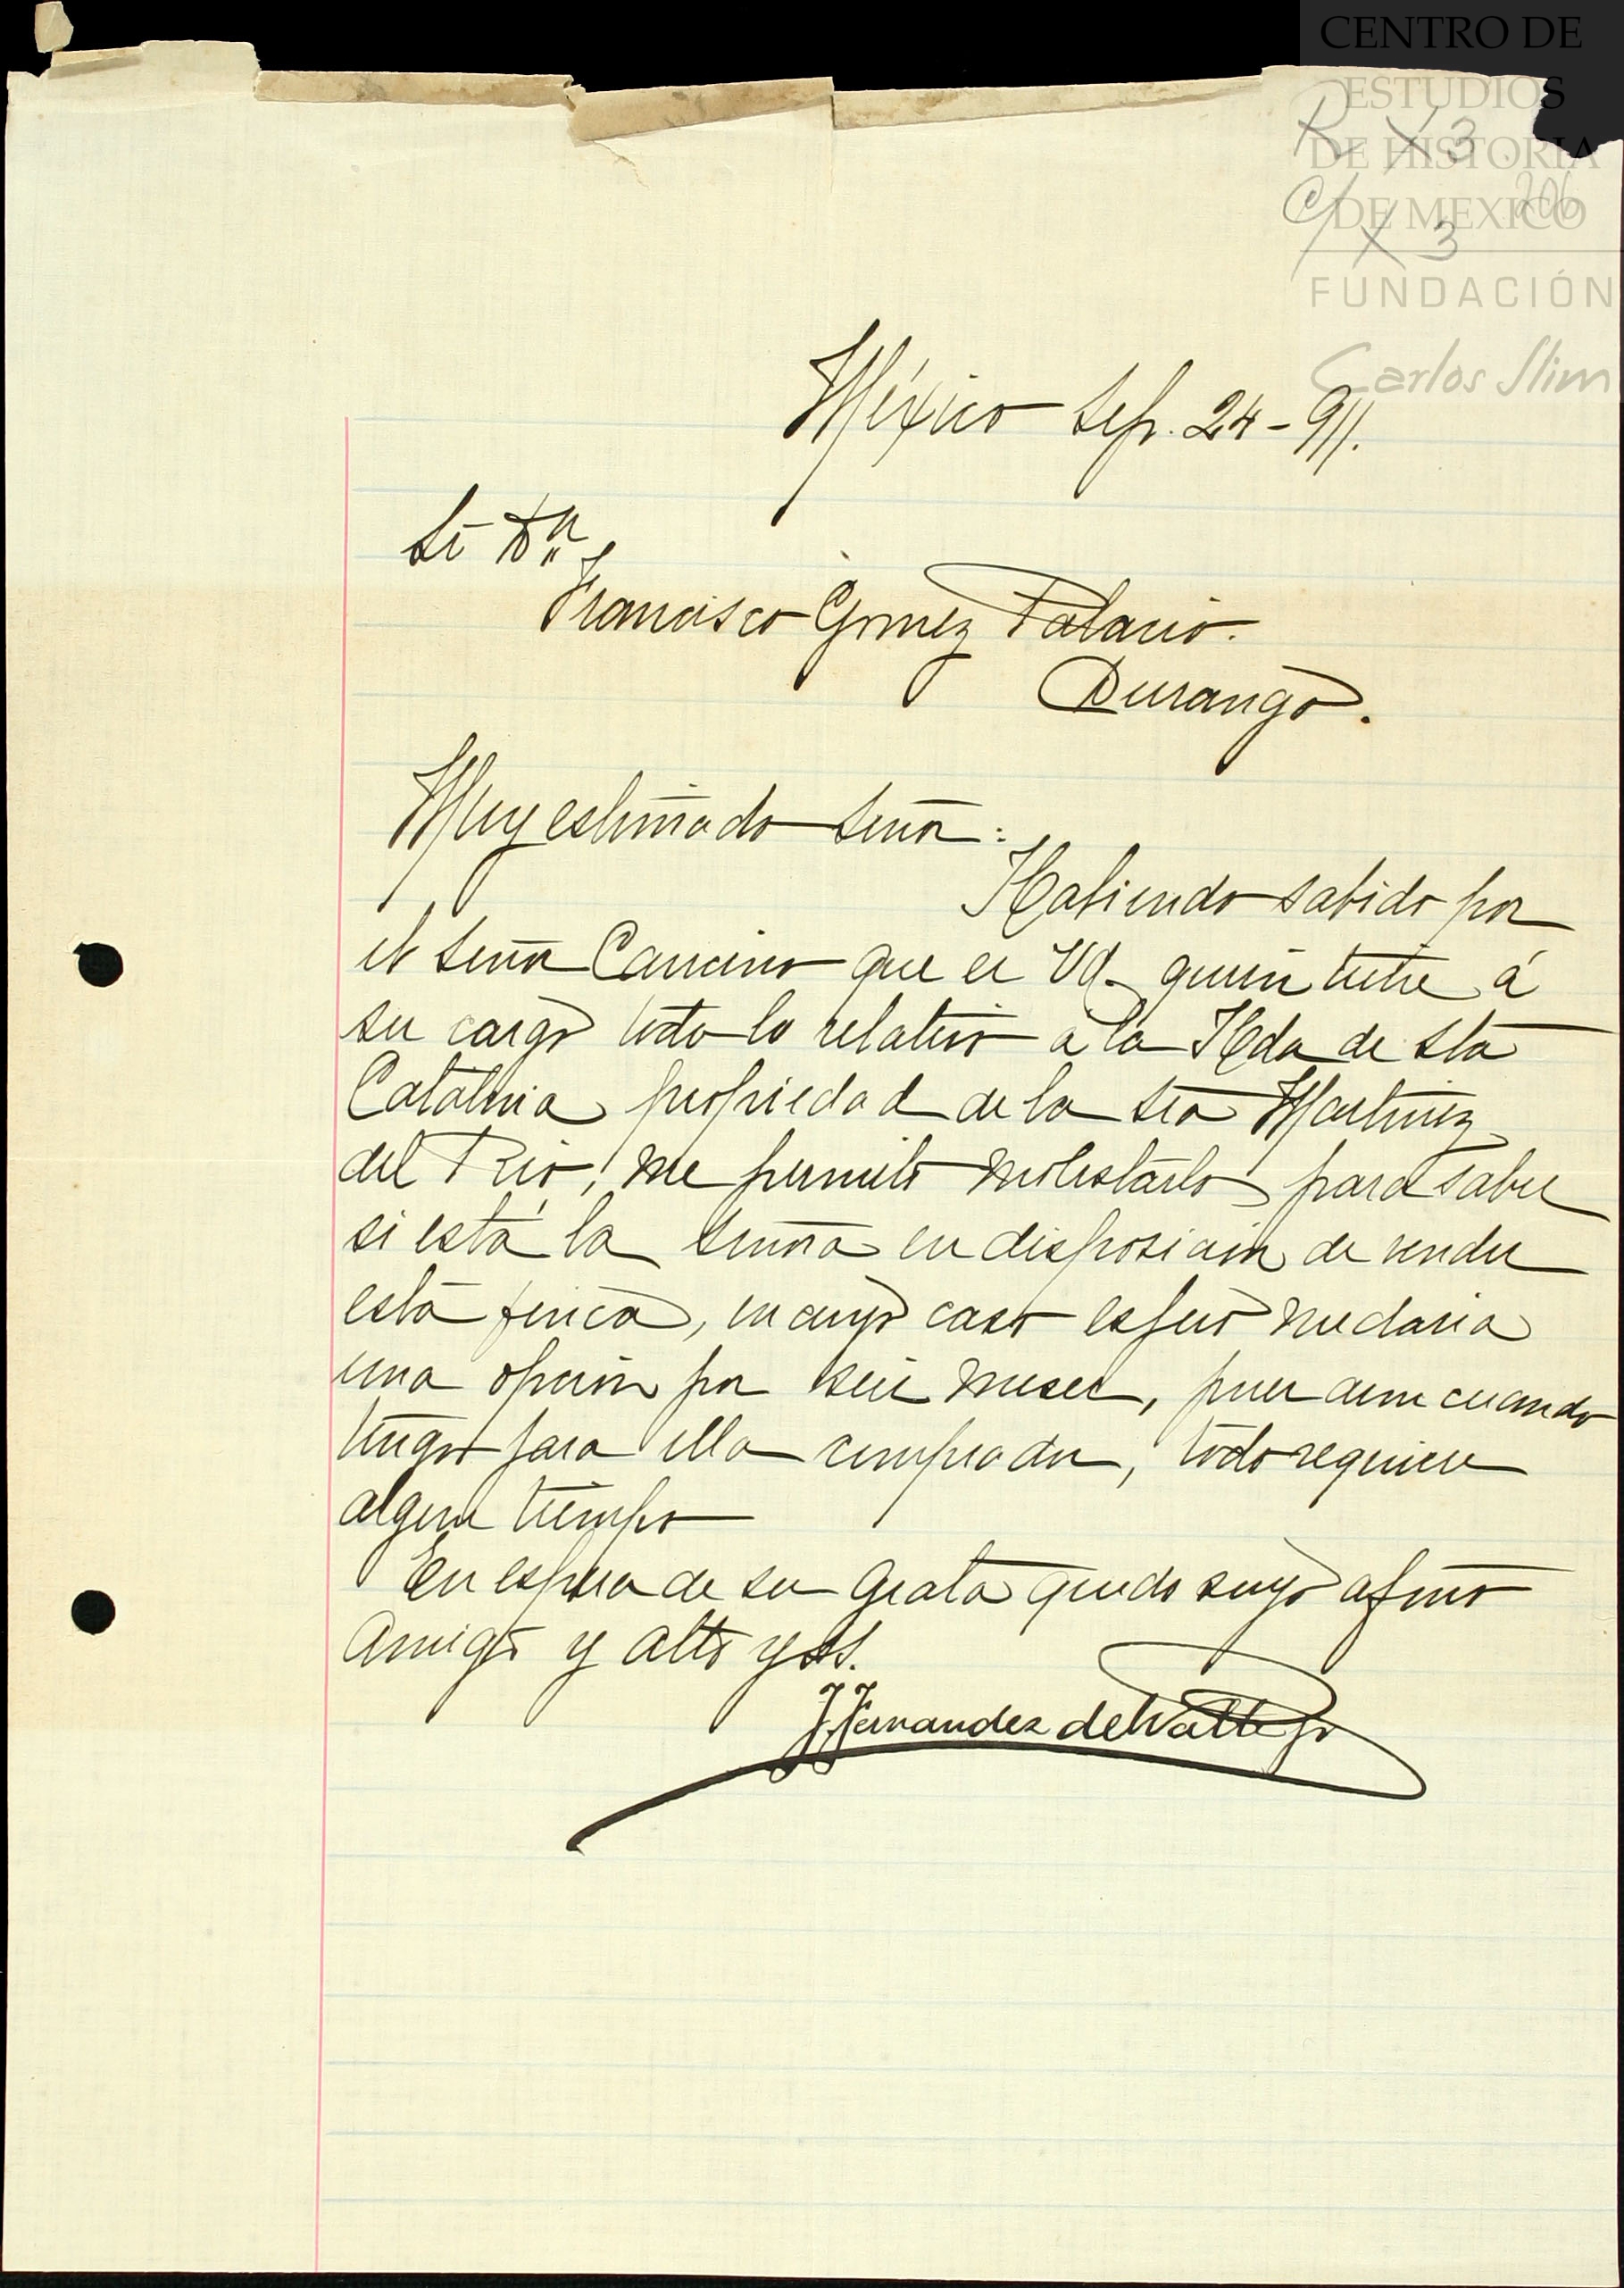 CENTRO DE
ESTUDIOS
DE HISTORIA
DE MEXICO
FUNDACIÓN
Carlos Slim
R X3
C/X 3 206
México Sep. 24-911.
Sr Dn
Francisco Gomez Palacio.
Durango.
Muy estimado Señor:
Habiendo sabido por
el Señor Cancino que es Vd. quien tiene á
su cargo todo lo relativo a la Hda de Sta
Catalina propiedad de la Sra Martinez
del Rio, me permito molestarlo para saber
si está la Señora en disposicion de vender
esta finca, en cuyo caso espero me daria
una opcion por seis meses, pues aun cuando
tengo para ella comprador, todo requiere
algun tiempo
En espera de su grata quedo suyo afmo
amigo y atto y ss.
J Fernandez de